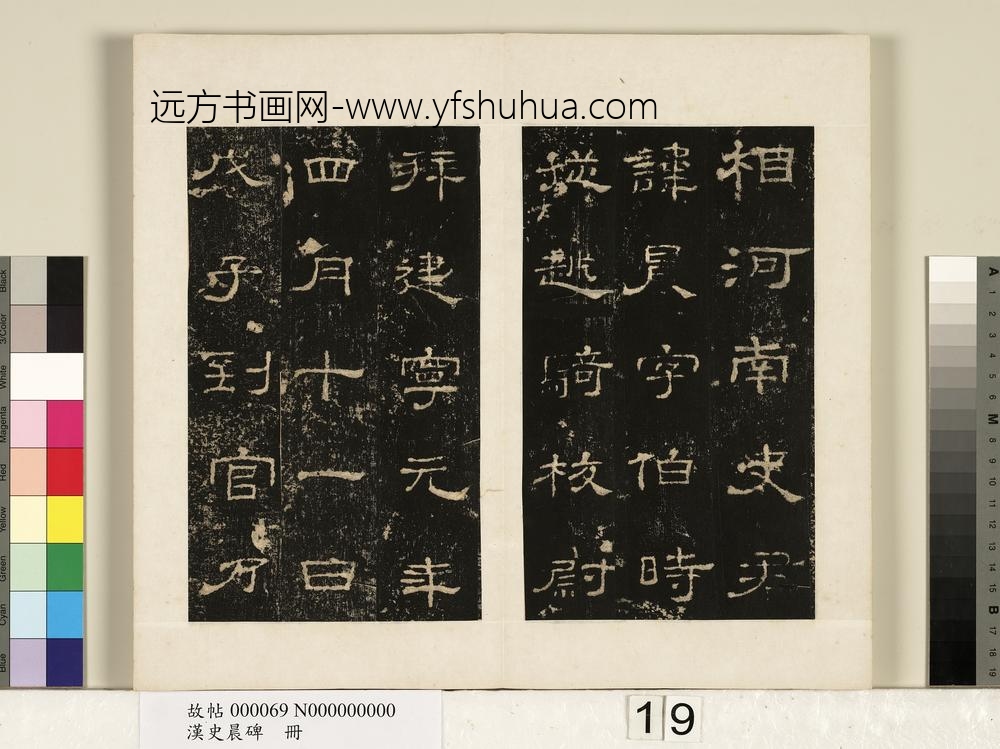 远方书画网-www.yfshuhua.com
相河南史君
諱晨字伯時
從越騎校尉
拜建寧元年
四月十一日
戊子到官乃
Black
3/Color
White
Magenta
Red
Yellow
Green
Cyan
Blue
A 1 2 3 4 5 6 M 8 9 10 11 12 13 14 15 B 17 18 19
故帖 000069 N000000000
漢史晨碑 冊
19